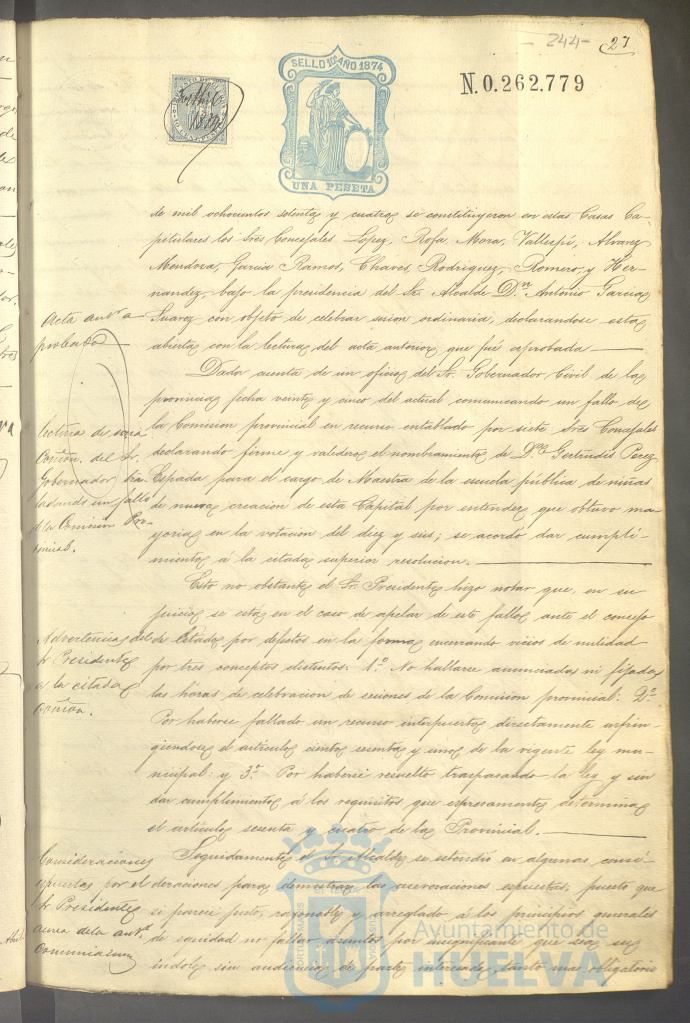 - 244 -
27
SELLO 10º AÑO 1874
UNA PESETA
N. 0.262,779
de mil ochocientos setenta y cuatro se constituyeron en estas Casas Ca-
pitulares los Sres Concejales Lopez, Rofa, Mora, Vallespí, Alvarez
Mendoza, Garcia Ramos, Chaves, Rodriguez, Romero, y Her-
nandez, bajo la presidencia del Sr. Alcalde Dn. Antonio Garcia
Acta antr. a-
probada
Suarez con objeto de celebrar sesion ordinaria, declarandose esta
abierta con la lectura del acta anterior que fué aprobada
Dada cuenta de un oficio del Sr. Gobernador Civil de la
provincia fecha veinte y cinco del actual comunicando un fallo de
la Comision provincial en recurso entablado por siete Sres Concejales
declarando firme y valedero el nombramiento de Dña Gertrudis Perez
Espada para el cargo de Maestra de la escuela pública de niñas
de nueva creacion de esta Capital por entender que obtuvo ma-
yoria en la votacion del diez y seis; se acordó dar cumpli-
miento á la citada superior resolucion.
Lectura de una
Comon. del Sr.
Gobernador tra-
ladando un fallo
de la Comision Pro-
vincial.
Esto no obstante el Sr. Presidente hizo notar que, en su
juicio se está en el caso de apelar de este fallo ante el consejo
de Estado por defectos en la forma encerrando vicios de nulidad
por tres conceptos distintos: 1º. No hallarse anunciadas ni fijadas
las horas de celebracion de sesiones de la Comision provincial: 2º.
Por haberse fallado un recurso interpuesto directamente infrin-
giendose el artículo ciento sesenta y uno de la vigente ley mu-
nicipal: y 3º. Por haberse resuelto traspasando la ley y sin
dar cumplimiento á los requisitos que espresamente determina
el artículo sesenta y cuatro de la Provincial.
Advertencia del
Sr Presidente
a la citada
Seguidamente el Sr. Alcalde se estendió en algunas consi-
deraciones para demostrar las aseveraciones espuestas, puesto que
si parece justo, razonable y arreglado á los principios generales
de equidad no fallar asuntos por insignificante que sea su
índole sin audiencia de parte interesada, tanto mas obligatorio
Consideraciones
espuestas por el
Sr Presidente
acerca de la antr.
Comunicacion
Ayuntamiento de
HUELVA